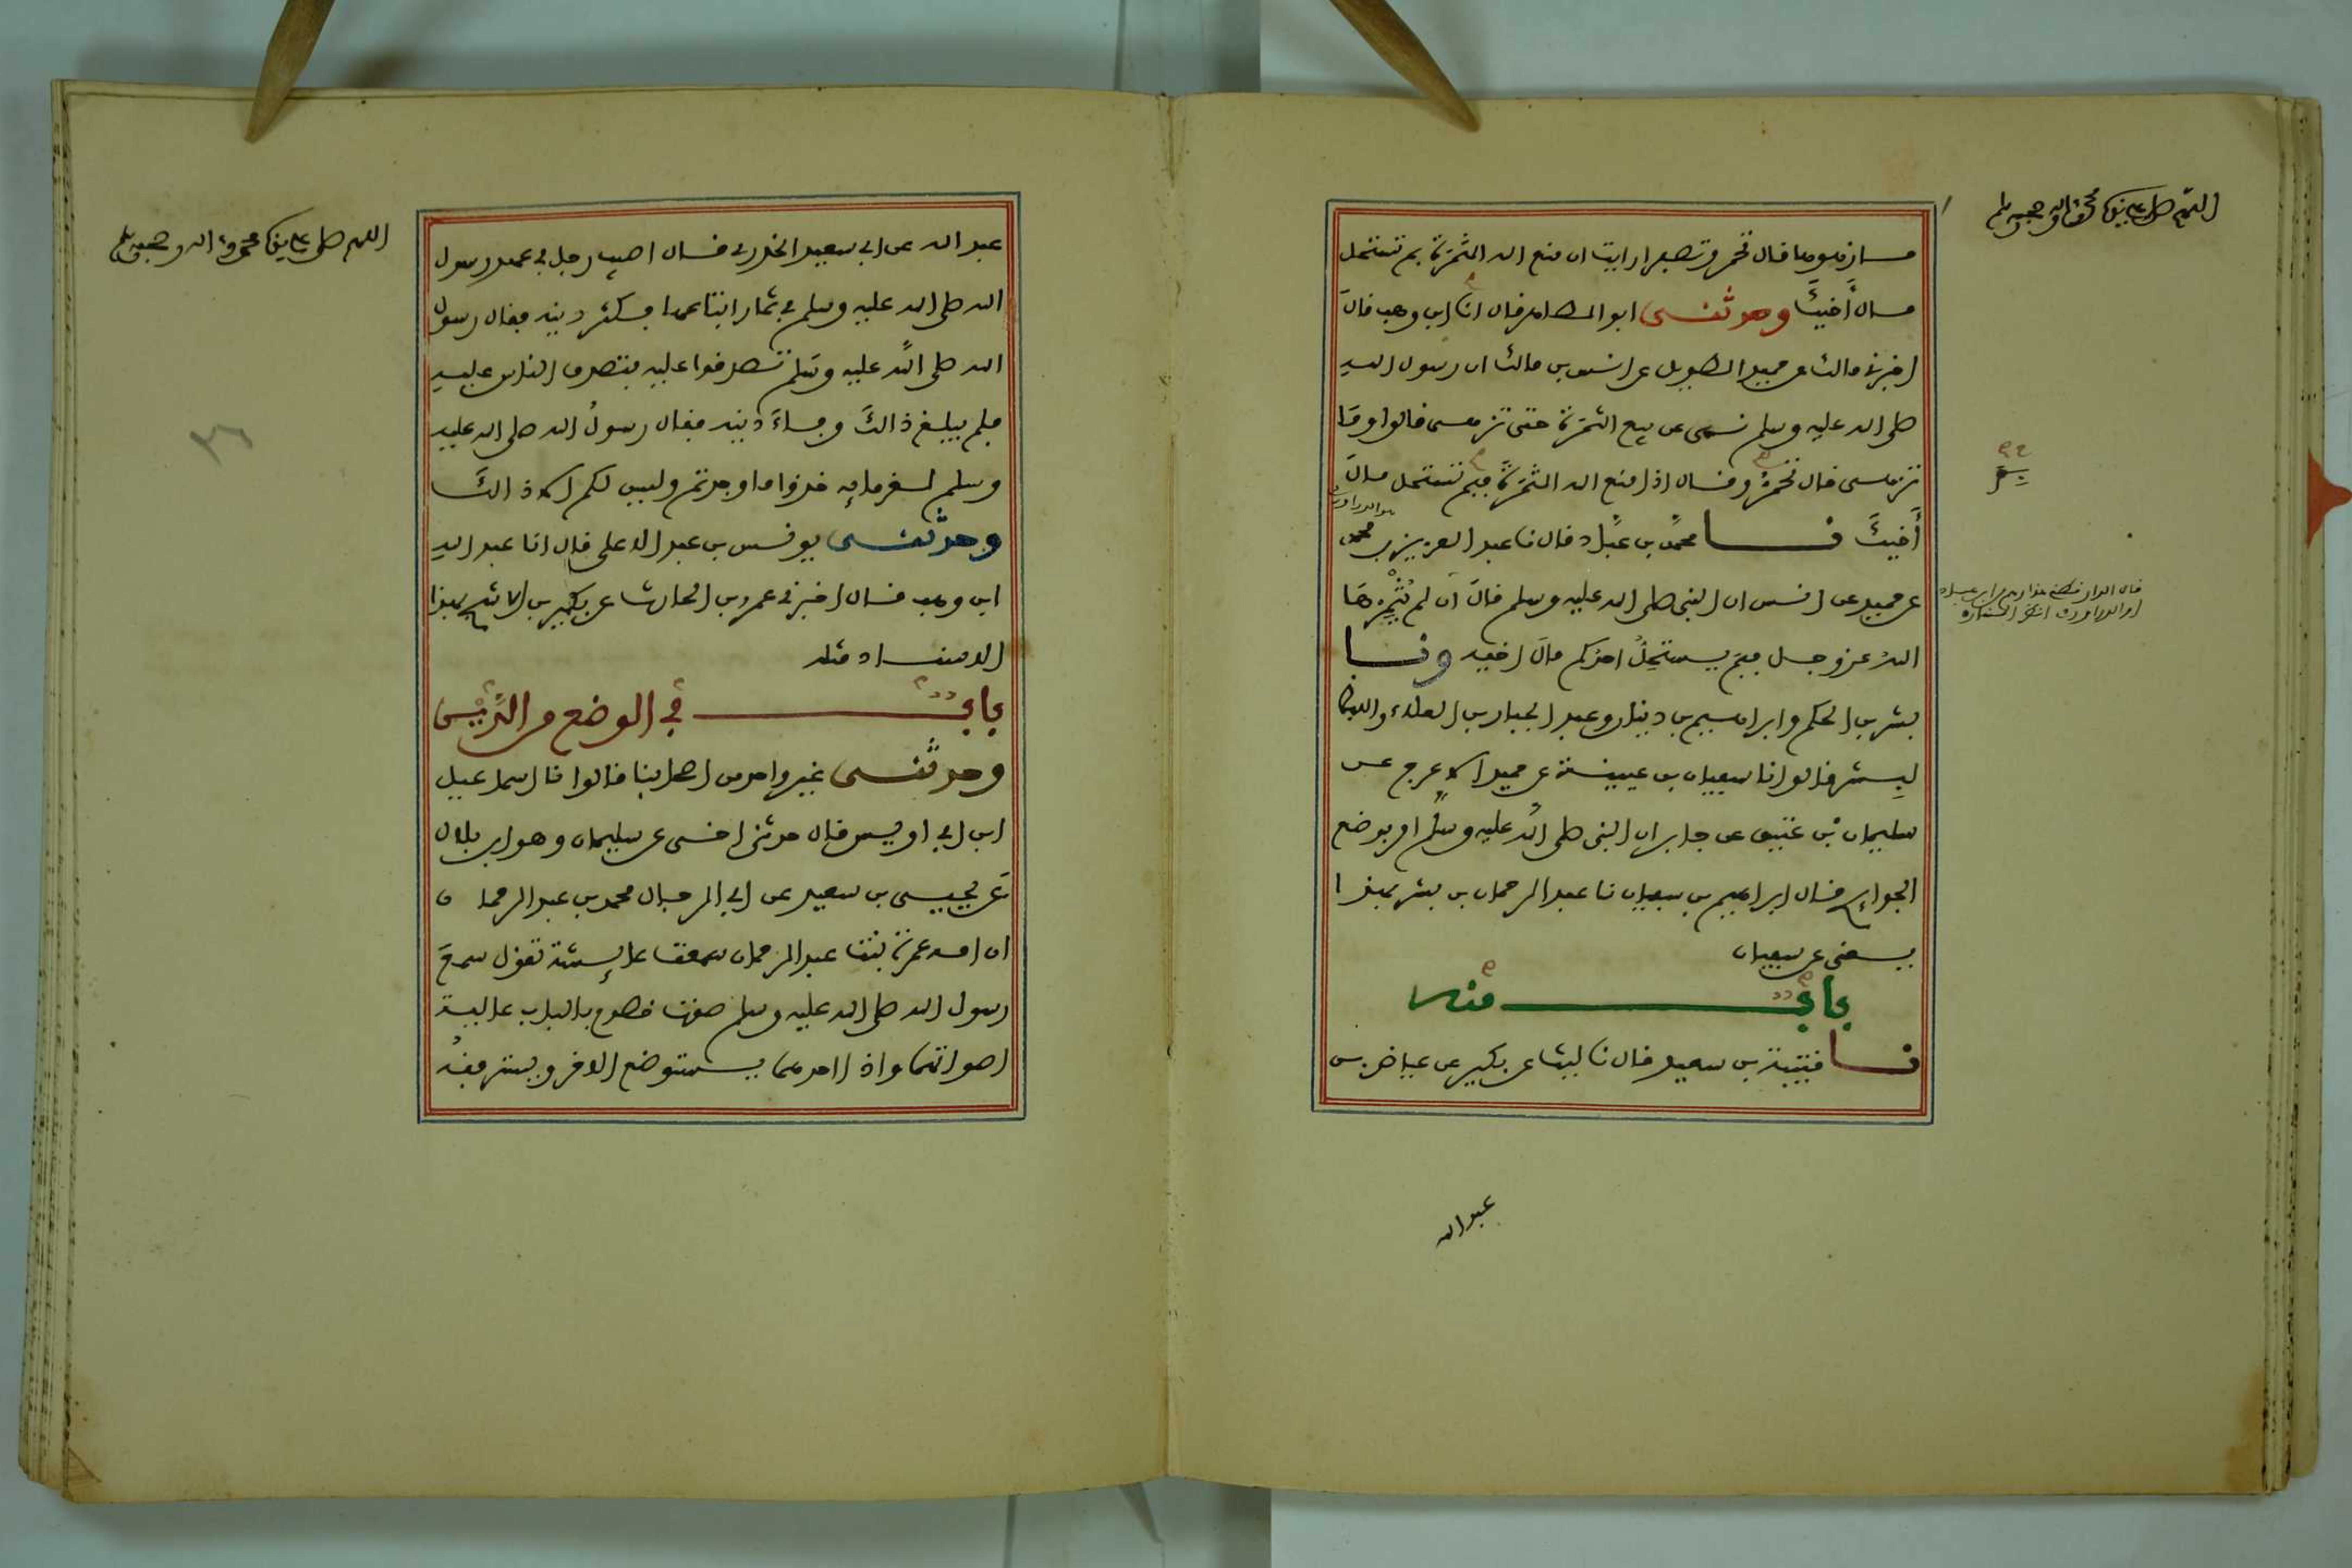 اللهم صل على نبينا محمد وآله وصحبه وسلم
ما زهوها قال تحمر وتصفر ارايت ان منع الله الثمرة بم تستحل
مال أخيكَ وحدثنى ابو الطاهر قال انا ابن وهب قال
اخبرنى مالك عن حميد الطويل عن انس بن مالك ان رسول الله
صلى الله عليه وسلم نهى عن بيع الثمرة حتى تزهى قالوا وما
تزهى قال تحمرُّ وقال اذا منع الله الثمرةَ فبم تستحل مالَ
أَخيكَ نا محمدُ بن عبَّاد قال نا عبد العزيز بن محمد
هو الدراوردى
عن حميد عن انس ان النبى صلى الله عليه وسلم قالَ ان لم يُثْمِرْهَا
اللهُ عز وجل فبم يستحِلُ احدكم مالَ اخيه ونا
بشر بن الحكم وابراهيم بن دينار وعبد الجبار بن العلاء واللفظ
لبِشر قالوا نا سفيان بن عيينة عن حميد الاعرج عن
سليمان بْن عتيق عن جابر ان النبى صلى الله عليه وسلم امر بوضع
الجوايح قال ابراهيم بن سفيان نا عبد الرحمان بن بشر بهذا
يعنى عن سفيان
بابٌ منه
نا قتيبة بن سعيد قال نا ليث عن بكير عن عياض بن
عبد الله
اللهم صل على نبينا محمد وآله وصحبه وسلم
عبد الله عن ابى سعيد الخدرى قال اصيب رجل فى عهد رسول
الله صلى الله عليه وسلم فى ثمار ابتاعها فكثر دينه فقال رسول
الله صلى اللَّه عليه وسَلم تصدقوا عليه فتصدق الناس عليه
فلم يبلغ ذالكَ وفاءَ دينه فقال رسولُ الله صلى الله عليه
وسلم لغرمايِه خذوا ما وجدتم وليس لكم الا ذالكَ
وحدثنى يونس بن عبد الاعلى قال انا عبد الله
ابن وهب قال اخبرنى عمرو بن الحارث عن بكير بن الاشج بهذا
الاسناد مثله
بابٌ فى الوضع من الدَّيْن
وحدثنى غير واحد من اصحابنا قالوا نا اسماعيل
ابن ابى اويس قال حدثنى اخى عن سليمان وهو ابن بلال
عَن يحيى بن سعيد عن ابى الرجال محمد بن عبد الرحمان
ان امه عمرة بنت عبد الرحمان سمعت عائشة تقول سمعَ
رسول الله صلى الله عليه وسلم صوت خصوم بالباب عالية
اصواتهما واذا احدهما يستوضع الاخر ويسترفقهُ